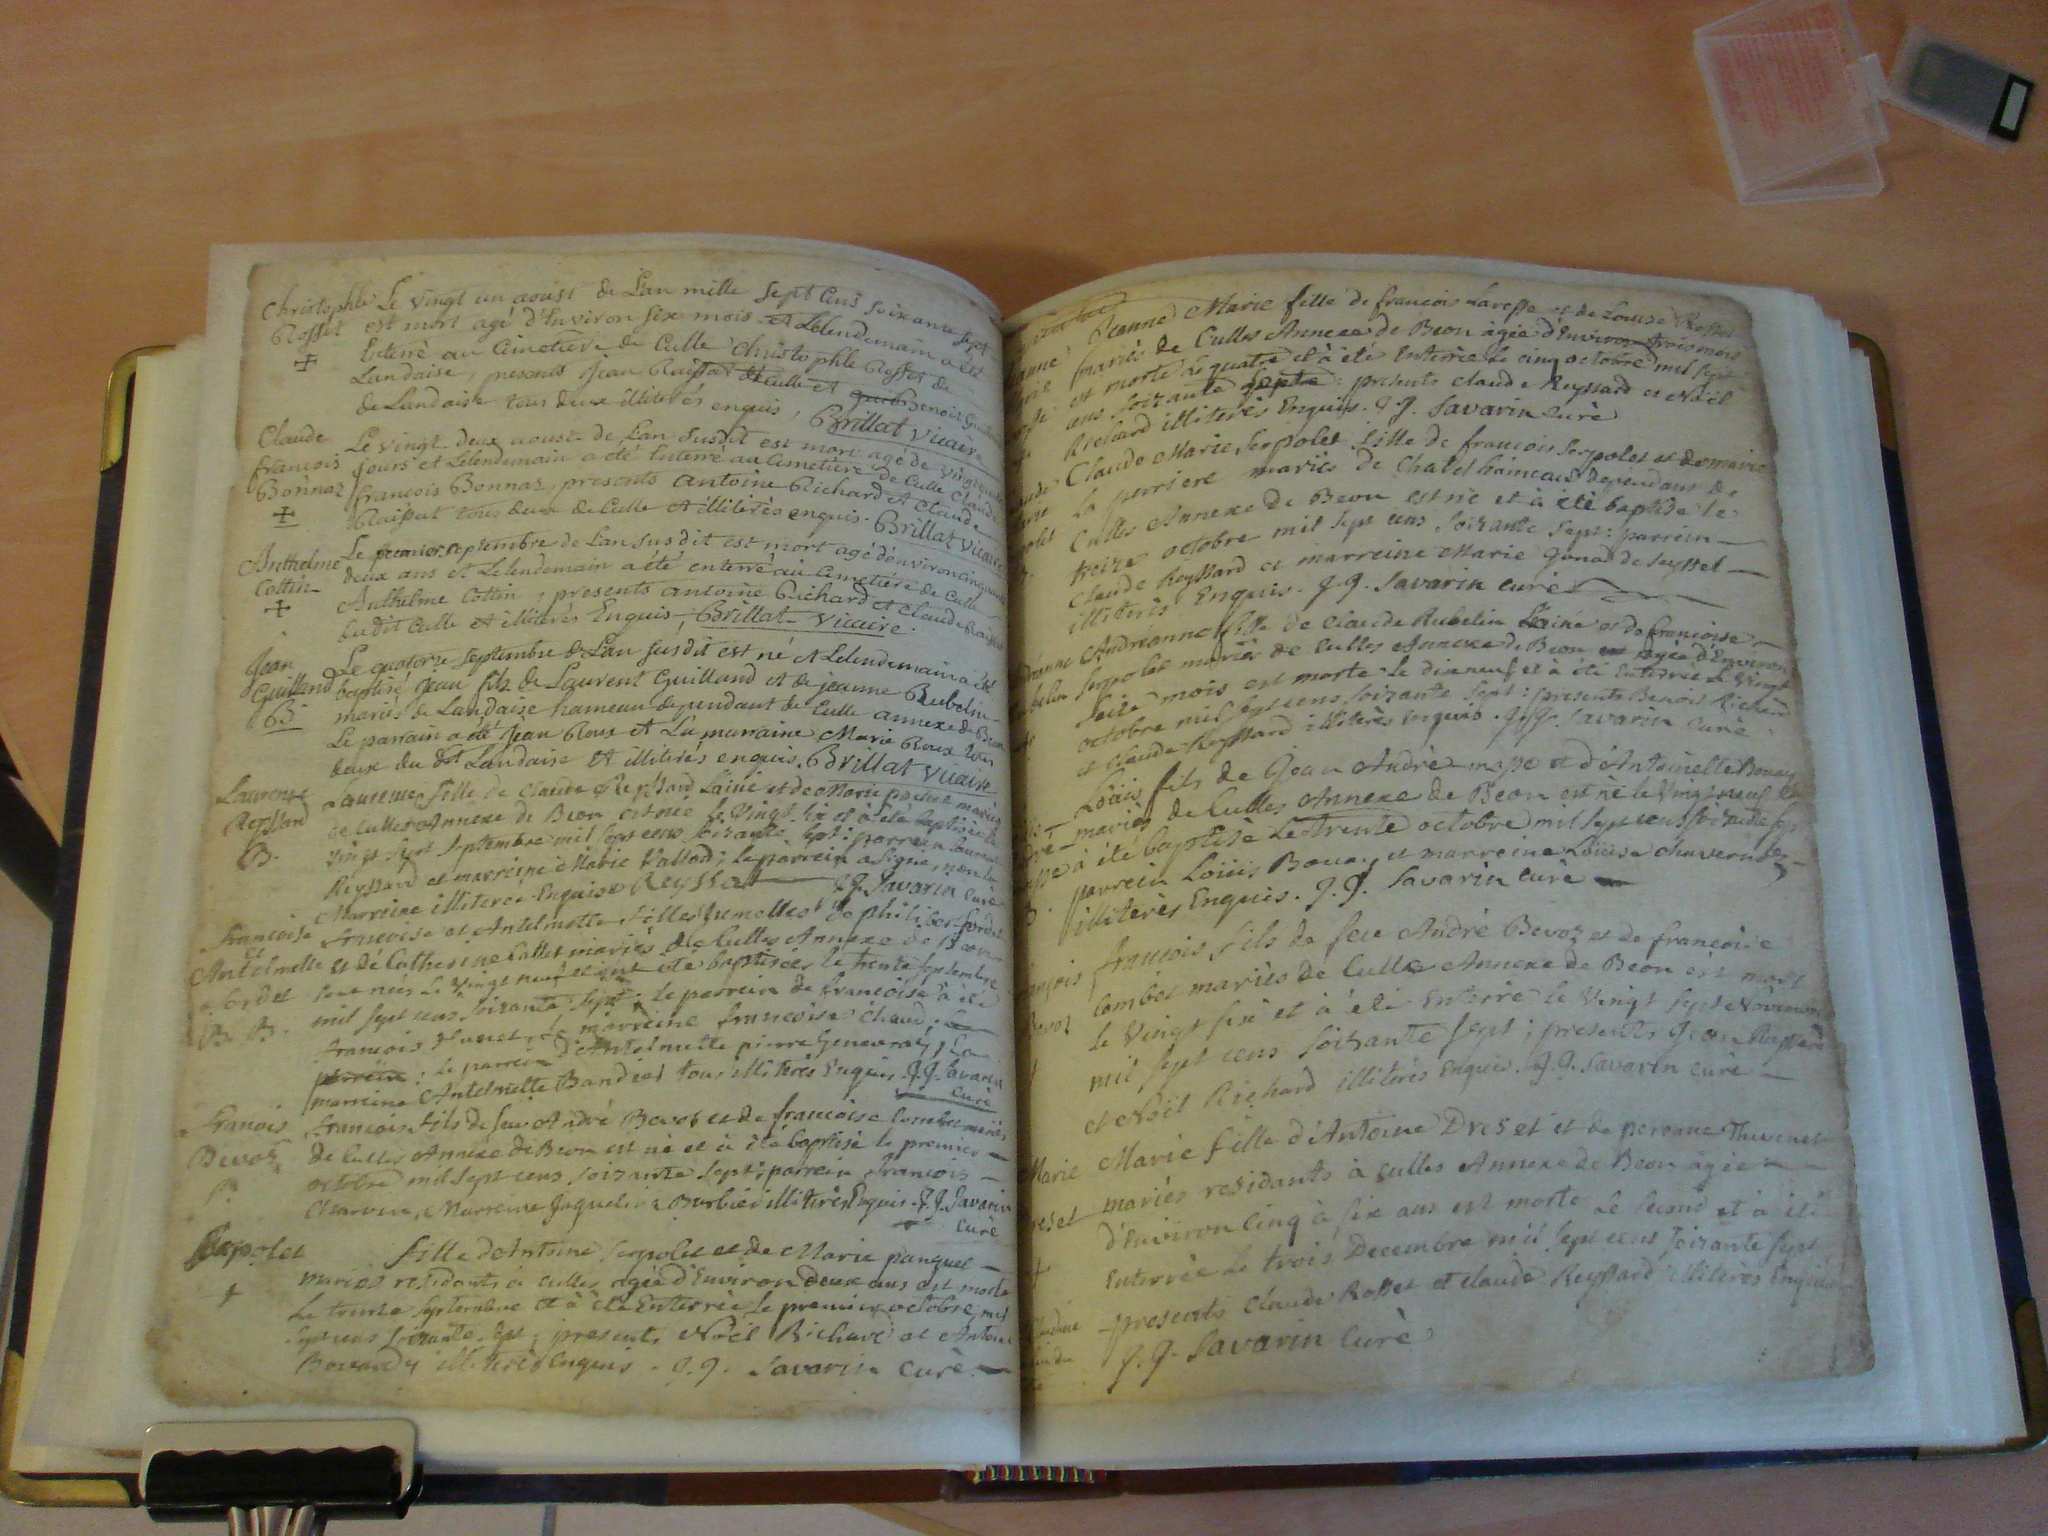 Christophle Le vingt un aoust de Lan mille sept cens soixante sept
Rosset est mort agé d'Environ six mois et Lelendemain a été
Enterré au Cimetiere de Culle Christophle Rosset de
Landaise, presents jean Raissat de Culle et Benoit
de Landaise tous deux illiterés enquis, Brillat vicaire
Claude Le vingt deux aoust de Lan susdit est mort agé de vingt
francois jours et Lelendemain a été Enterré au Cimetiere de Culle Claude
Bonnaz francois Bonnaz, presents antoine Richard et Claude
Raissat tous deux de Culle et illiterés enquis. Brillat vicaire
Anthelme Le premier septembre de Lan susdit est mort agé d'environ cinquante
Cottin deux ans et Lelendemain a été enterré au Cimetiere de Culle
Anthelme Cottin, presents antoine Richard et Claude Raissat
dudit Culle et illiterés Enquis, Brillat vicaire.
Jean Le quatorze septembre de Lan susdit est né et Lelendemain a été
Guilland baptisé Jean fils de Laurent Guilland et de jeanne Rubelin
B mariés de Landaise hameau dependant de Culle annexe de Beon
Le parrain a été Jean Roux et La marraine Marie Roux tous
deux du dit Landaise et illiterés enquis. Brillat vicaire
Laurence Laurence fille de Claude Reyssard Lainé et de Marie mariés
Reyssard de Culles Annexe de Beon est née le vingt six et à été baptisée le
B. vingt sept septembre mil sept cens soixante sept: parrein Laurent
Reyssard et marreine Marie Vallod; le parrein a signé, non la
Marreine illiterée Enquise Reyssard J.J. Savarin curè
francoise francoise et Antelmette filles jumelles de philibert fordet
et
Antelmette et de Catherine Callet mariés de Culles Annexe de Beon
fordet sont nées le vingt neuf et ont été baptisées le trente septembre
B. B. mil sept cens soixante sept; le parrein de francoise à été
francois et la marreine francoise Chaud; Le
parrein: le parrein d'Antelmette pierre Genevray, La
marreine Antelmette tous illiterés Enquis. J.J. Savarin
curè
francois francois fils de feu André Bevoz et de francoise Combet mariés
Bevoz de Culles Annexe de Beon est né et à été baptisé le premier
octobre mil sept cens soixante sept; parrein francois
Charvin, Marreine Jaqueline Burbier illiterés Enquis. J.J. Savarin
curè
Serpolet fille d'Antoine Serpolet et de Marie panquet
mariés residants à Culles agée d'Environ deux ans est morte
Le trente septembre et à été Enterrée le premier octobre mil
sept cens soixante sept; presents Noël Richard et Antoine
illiterés Enquis. J.J. Savarin Curè.
Jeanne Marie fille de francois Lareppe et de Louise Rosset
mariés de Culles Annexe de Beon agée d'Environ trois mois
est morte le quatre et à été Enterrée le cinq octobre mil sept
cens soixante septe: presents Claude Reyssard et Noël
Richard illiterés Enquis. J.J. Savarin curè
Claude Marie Serpolet fille de francois Serpolet et de marie
la perriere mariés de Chatel hameau dependant de
Culles Annexe de Beon est née et à été baptisée le
treize octobre mil sept cens soixante sept: parrein
Claude Reyssard et marreine Marie de Seyssel
illiterés Enquis. J.J. Savarin curè
Andréanne fille de Claude Rubelin Lainé et de francoise
Serpolet mariés de Culles Annexe de Beon agée d'Environ
seize mois est morte le dixneuf et à été Enterrée le vingt
octobre mil sept cens soixante sept: presents Benoit Richard
et Claude Reyssard illiterés Enquis. J.J. Savarin curè.
Loüis fils de Jean André mappe et d'Antoinette Bovay
mariés de Culles Annexe de Beon est né le vingt neuf et
à été baptisé Le trente octobre mil sept cens soixante sept
parrein Loüis Bovay et marreine Loüise
illiterés Enquis. J.J. Savarin curè
francois fils de feu André Bevoz et de francoise
Combet mariés de Culles Annexe de Beon est mort
le vingt six et à été Enterré le vingt sept Novembre
mil sept cens soixante sept; presents Jean Reyssard
et Noël Richard illiterés Enquis. J.J. Savarin curè
Marie Marie fille d'Antoine Dreset et de peronne Thevenet
reset mariés residants à Culles Annexe de Beon agée
d'Environ cinq à six ans est morte le second et à été
Enterrée le trois Decembre mil sept cens soixante sept
presents Claude Rosset et Claude Reyssard illiterés Enquis
J.J. Savarin Curè